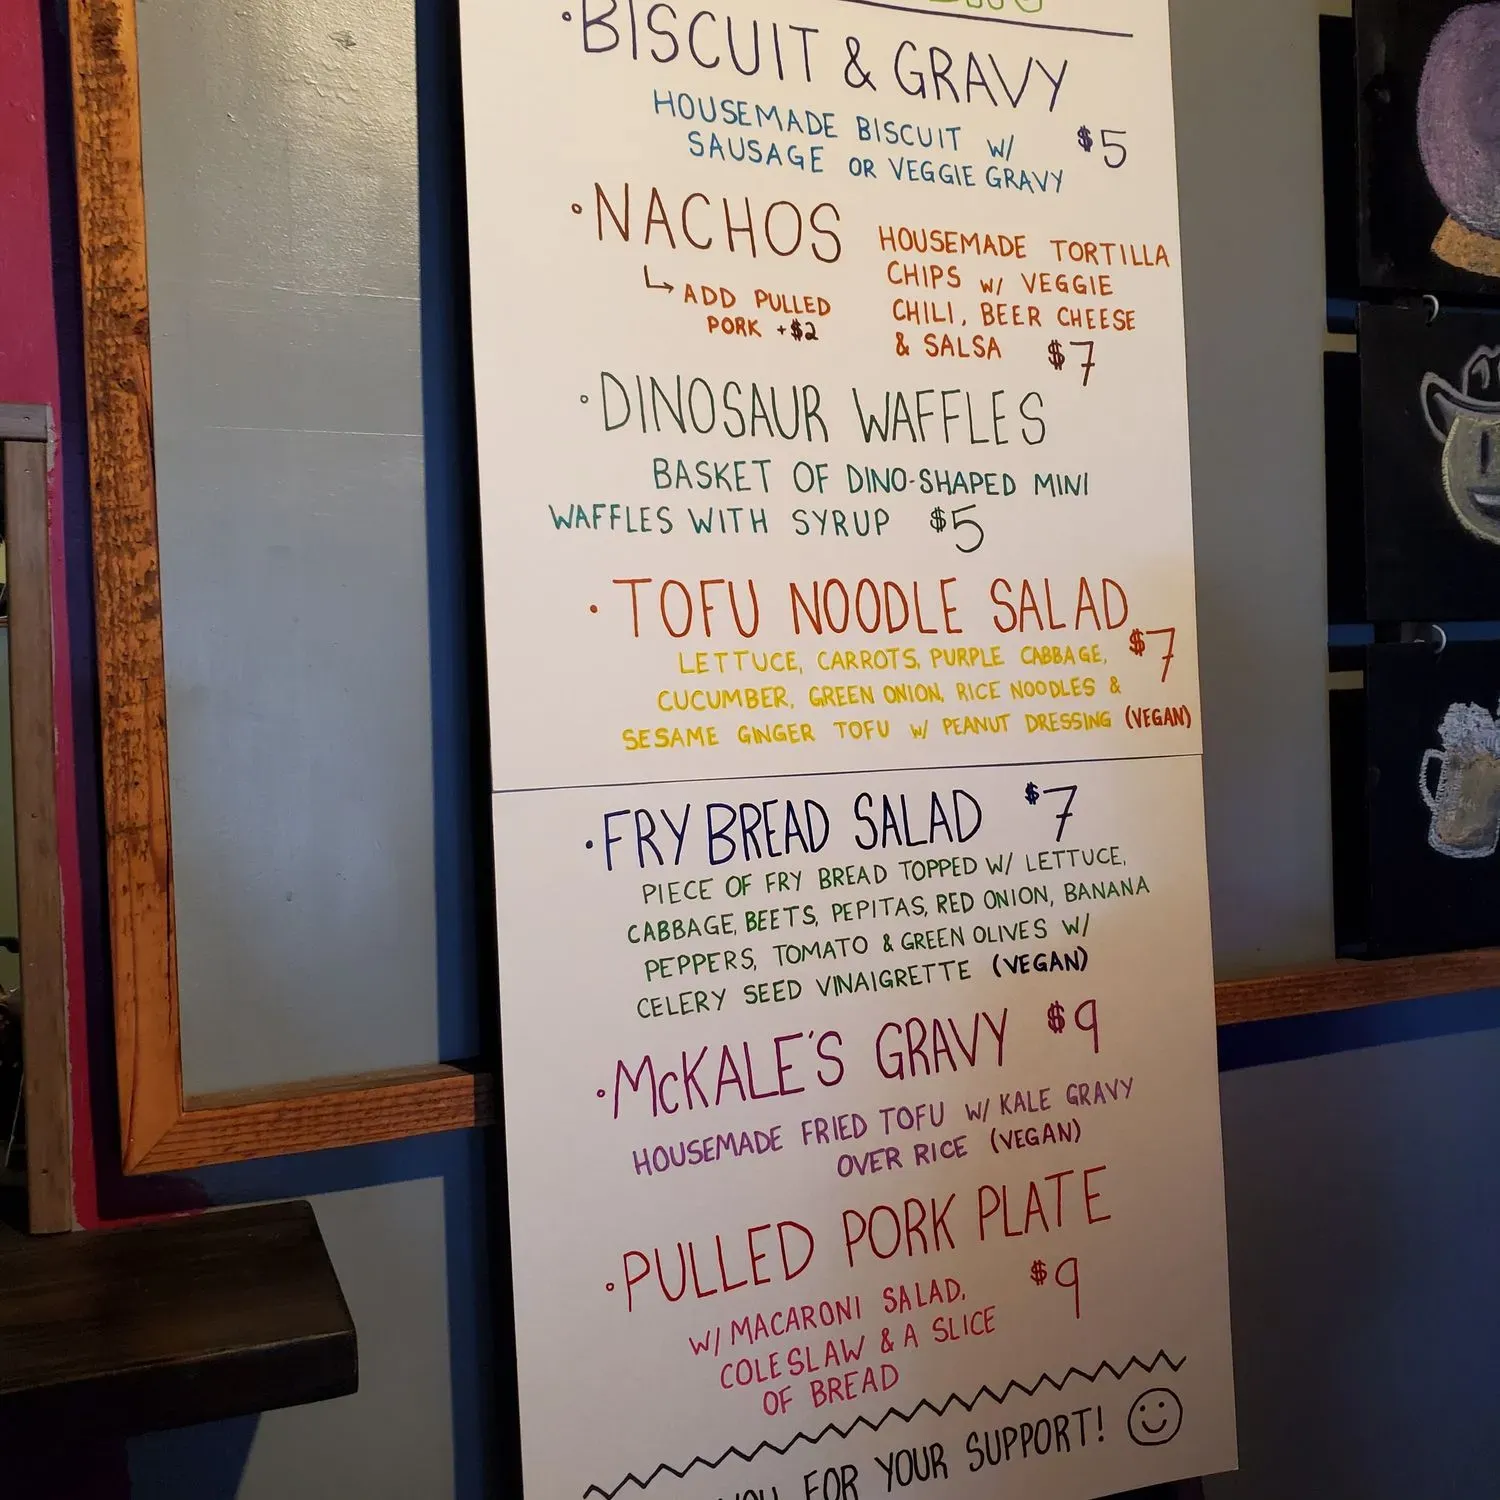 ·BISCUIT & GRAVY
HOUSEMADE BISCUIT W/ $5
SAUSAGE OR VEGGIE GRAVY
·NACHOS
HOUSEMADE TORTILLA
CHIPS W/ VEGGIE
CHILI, BEER CHEESE
& SALSA $7
↳ ADD PULLED
PORK +$2
·DINOSAUR WAFFLES
BASKET OF DINO-SHAPED MINI
WAFFLES WITH SYRUP $5
·TOFU NOODLE SALAD
LETTUCE, CARROTS, PURPLE CABBAGE, $7
CUCUMBER, GREEN ONION, RICE NOODLES &
SESAME GINGER TOFU W/ PEANUT DRESSING (VEGAN)
·FRY BREAD SALAD $7
PIECE OF FRY BREAD TOPPED W/ LETTUCE,
CABBAGE, BEETS, PEPITAS, RED ONION, BANANA
PEPPERS, TOMATO & GREEN OLIVES W/
CELERY SEED VINAIGRETTE (VEGAN)
·McKALE'S GRAVY $9
HOUSEMADE FRIED TOFU W/ KALE GRAVY
OVER RICE (VEGAN)
·PULLED PORK PLATE
W/ MACARONI SALAD, $9
COLESLAW & A SLICE
OF BREAD
YOU FOR YOUR SUPPORT!